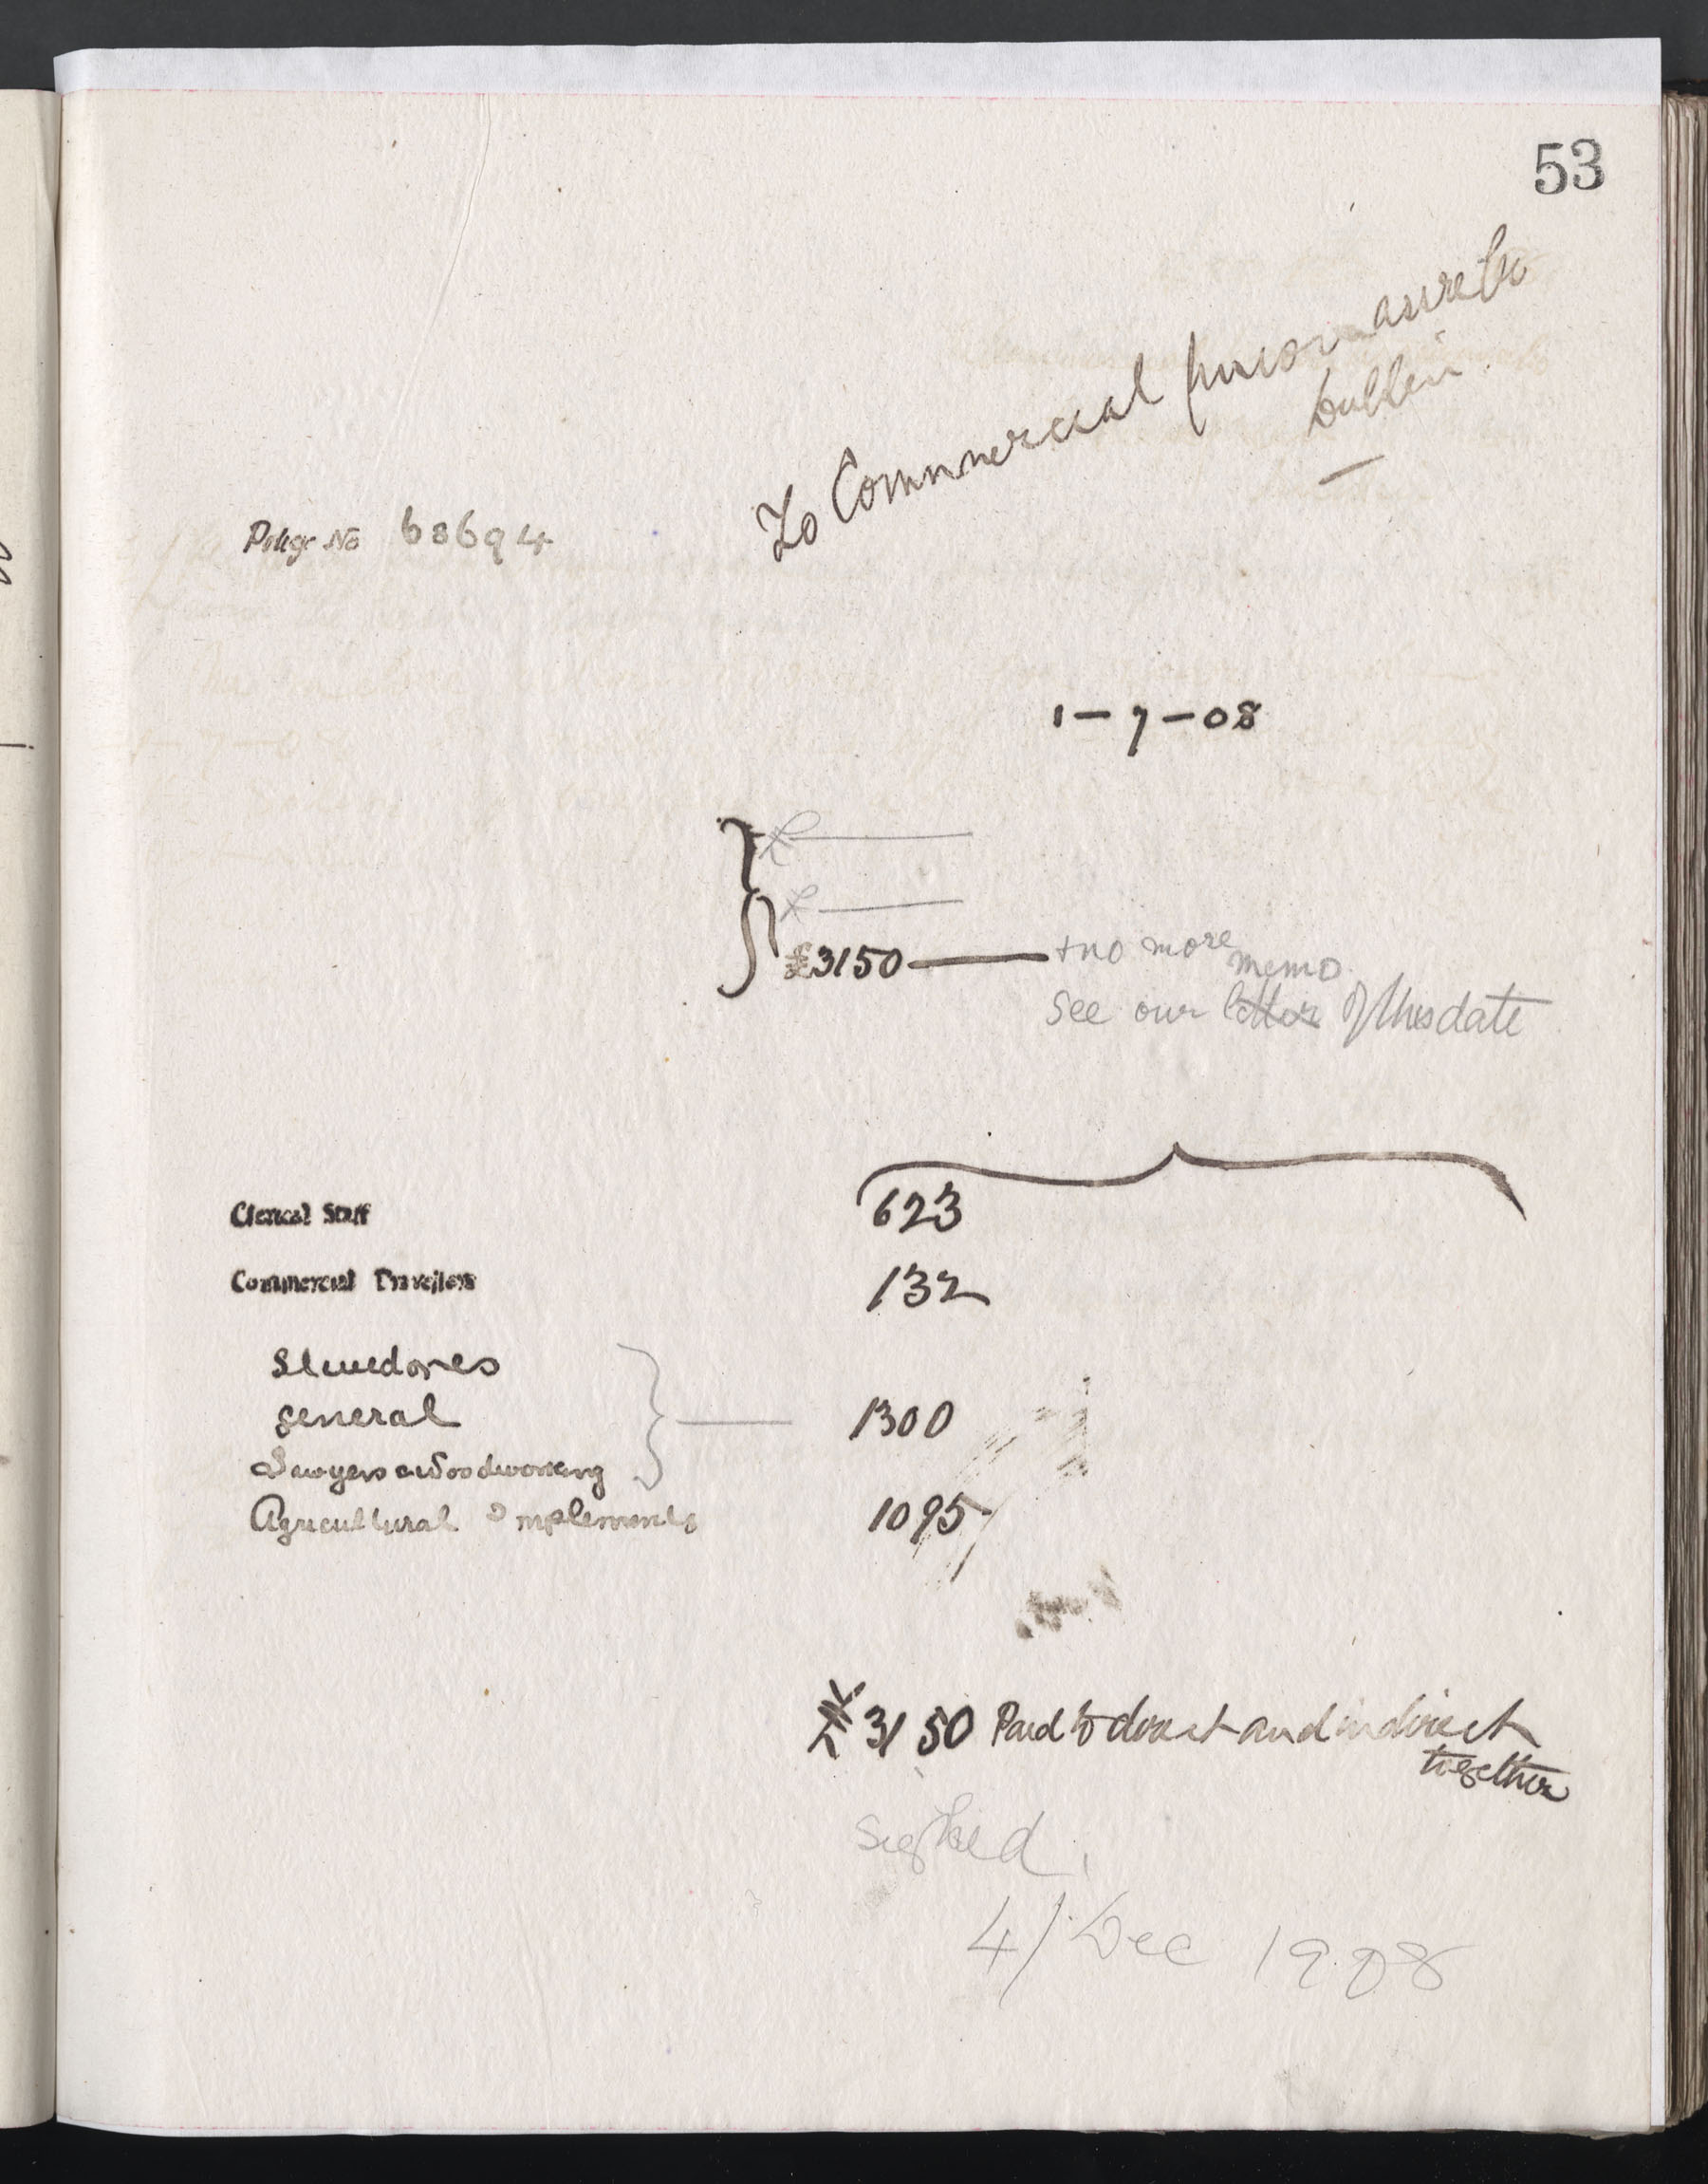 53
To Commercial
assce Co
Dublin
Policy No 68694
1-7-08
£
£
£3150 + no more
memo
see our letter of this date
Clerical Staff 623
Commercial Travellers 132
Stevedores
general 1300
Sawyers & Woodworking
Agricultural Implements 1095
£3150 Paid to direct and indirect
together
signed.
4/Dec 1908